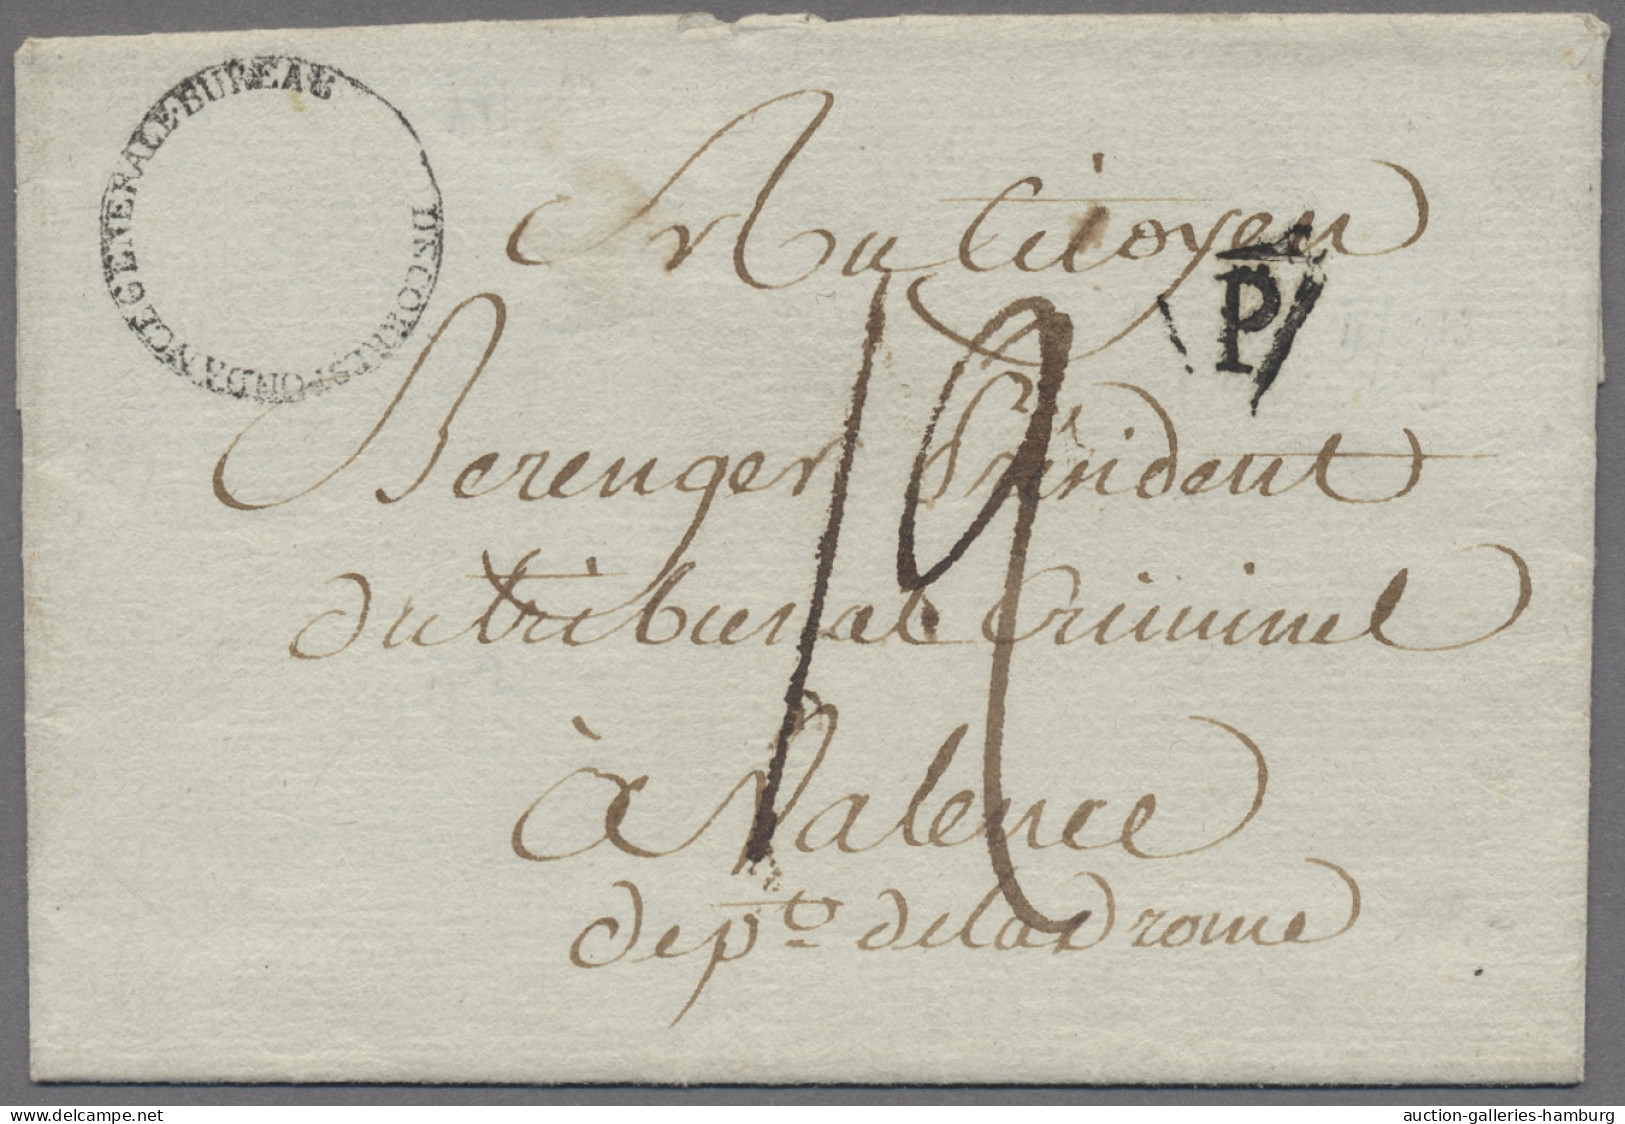 BUREAU DE CORRESPONDANCE GENERALE
Au Citoyen
P
19
Berenger President
du tribunal Criminel
à Valence
depto delaDrome
auction-galleries-hamburg